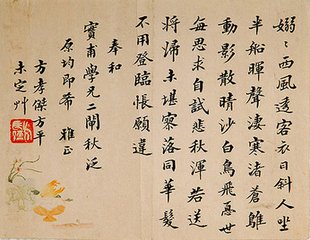 嫋〻西風透客衣日斜人坐
半船暉聲淒寒渚蒼鵰
動影散晴沙白鳥飛忽世
每思求自試悲秋渾若送
將歸未堪寥落同華髮
不用登臨悵願違
奉和
寶甫學兄二閘秋泛
原均即希 雅正
方孝傑方平
未定艸